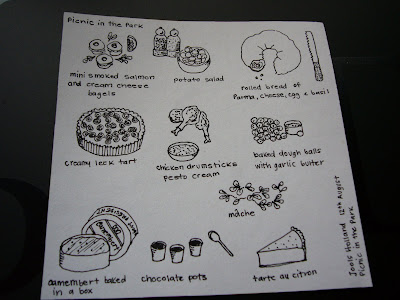 Picnic in the Park
mini smoked salmon
and cream cheese
bagels
potato salad
rolled bread of
Parma, cheese, egg + basil
creamy leek tart
chicken drumsticks
pesto cream
baked dough balls
with garlic butter
mâche
camembert baked
in a box
chocolate pots
tarte au citron
Jools Holland 12th August
Picnic in the Park